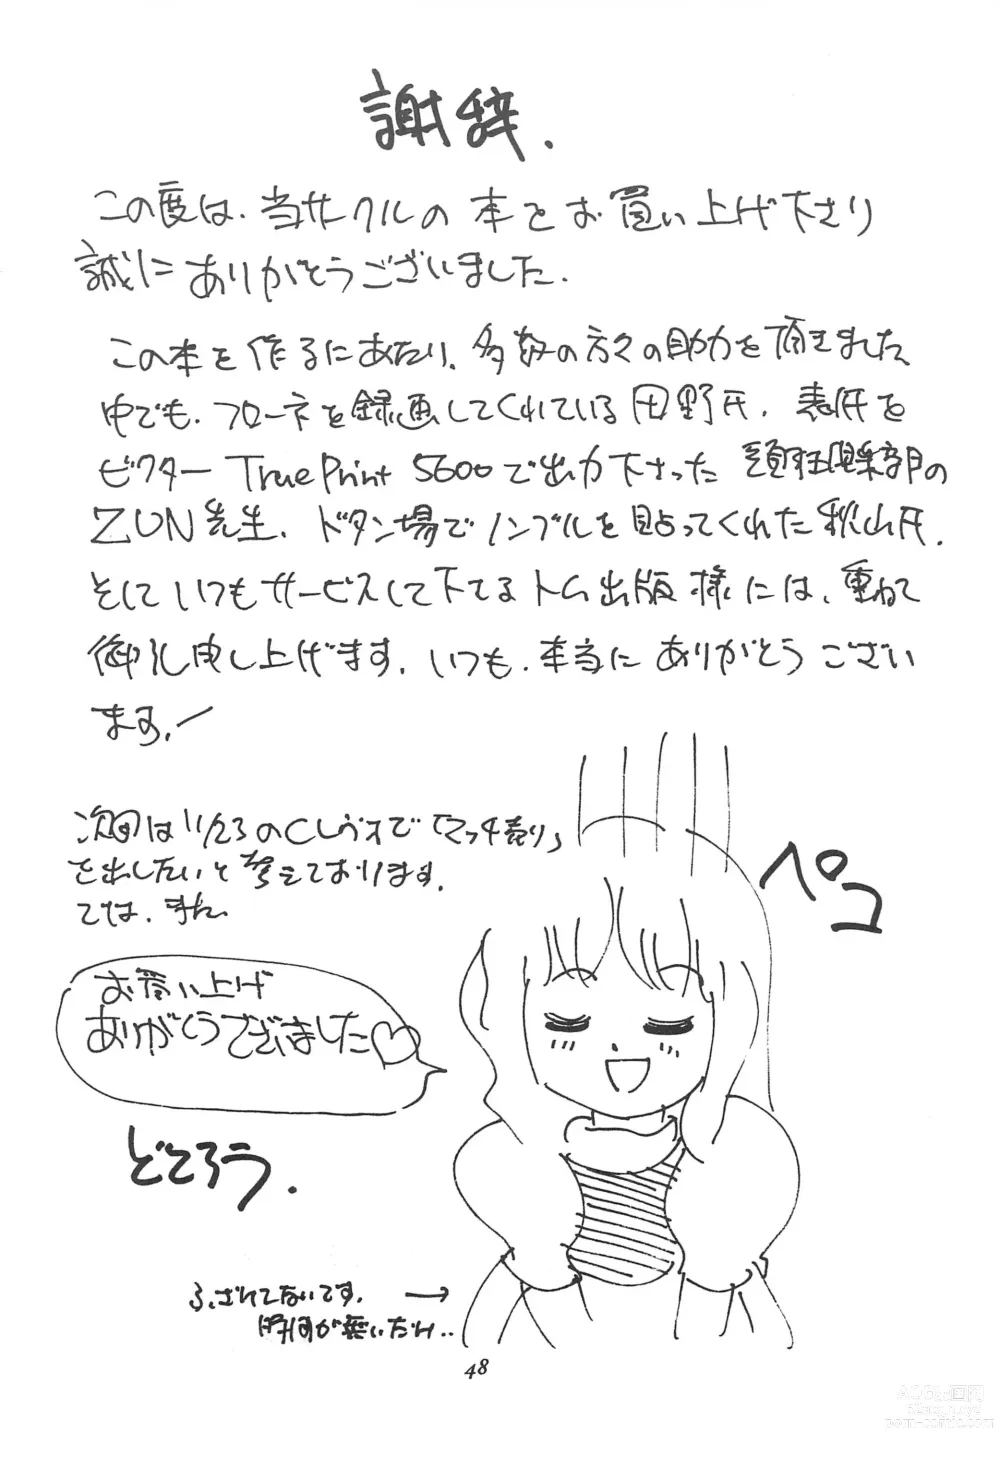 謝辞.
この度は、当サークルの本をお買い上げ下さり
誠にありがとうございました.
この本を作るにあたり、多数の方々の助力を頂きました
中でも、フローネを録画してくれている田野氏、表紙を
ビクター True Print 5600で出力下さった 頭狂倶楽部の
ZUN先生、ドタン場でノンブルを貼ってくれた秋山氏.
そしていつもサービスして下てるトム出版様には、重ねて
御礼申し上げます. いつも、本当にありがとうござい
ます!
次回は11/23のCレヴォで「マッチ売り」
を出したいと考えております.
では、また.
ペコ
お買い上げ
ありがとうございました♡
どころう.
ふざけてないです. →
時間が無いだけ..
48